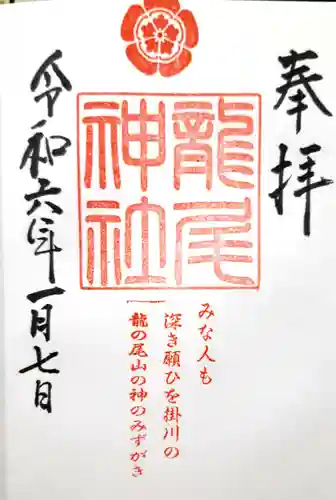 奉拝
龍尾神社
みな人も
深き願ひを掛川の
龍の尾山の神のみずがき
令和六年一月七日